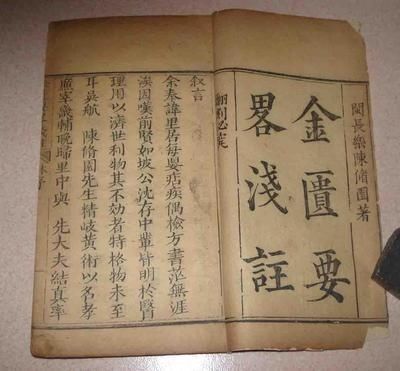 閩長樂陳脩園著
金匱要
畧淺註
翻刻必究
叙言
余奉諱里居每嬰痁疾偶檢方書茫無涯
涘因嘆前賢如坡公沈存中輩皆明於醫
理用以濟世利物其不效者特格物未至
耳吳航 陳脩園先生精岐黃術以名孝
廉宰畿輔晩歸里中與 先大夫結真率